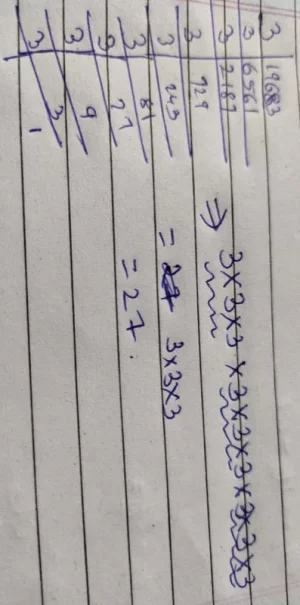 3 | 19683
3 | 6561
3 | 2187
3 | 729
3 | 243
3 | 81
3 | 27
3 | 9
3 | 3
1
⇒ 3×3×3×3×3×3×3×3×3
= 3×3×3
= 27.